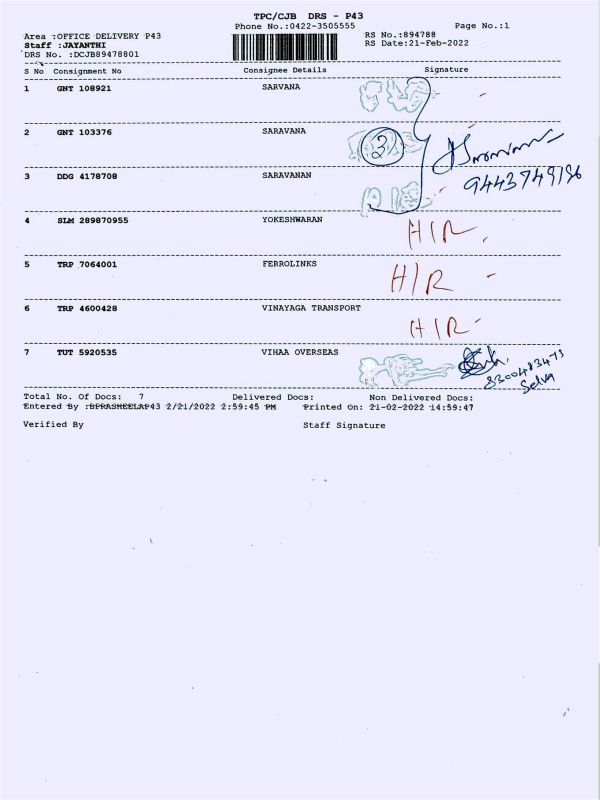 TPC/CJB DRS - P43
Phone No.:0422-3505555
Page No.:1
Area :OFFICE DELIVERY P43
RS No.:894788
Staff :JAYANTHI
RS Date:21-Feb-2022
DRS No. :DCJB89478801
S No Consignment No Consignee Details Signature
1 GNT 108921 SARVANA
2 GNT 103376 SARAVANA
3
3 DDG 4178708 SARAVANAN
9443749196
4 SLM 289870955 YOKESHWARAN H/R
5 TRP 7064001 FERROLINKS H/R
6 TRP 4600428 VINAYAGA TRANSPORT H/R
7 TUT 5920535 VIHAA OVERSEAS
8300483473
Selva
Total No. Of Docs: 7 Delivered Docs: Non Delivered Docs:
Entered By :BPRASHEELAP43 2/21/2022 2:59:45 PM Printed On: 21-02-2022 14:59:47
Verified By Staff Signature